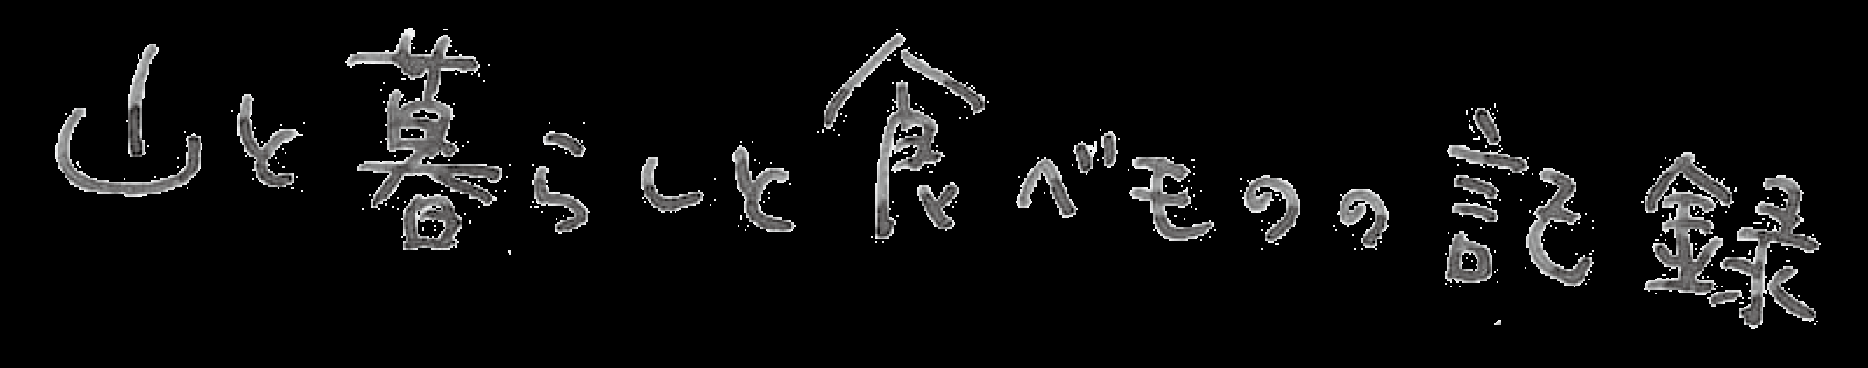 山と暮らしと食べモのの記録